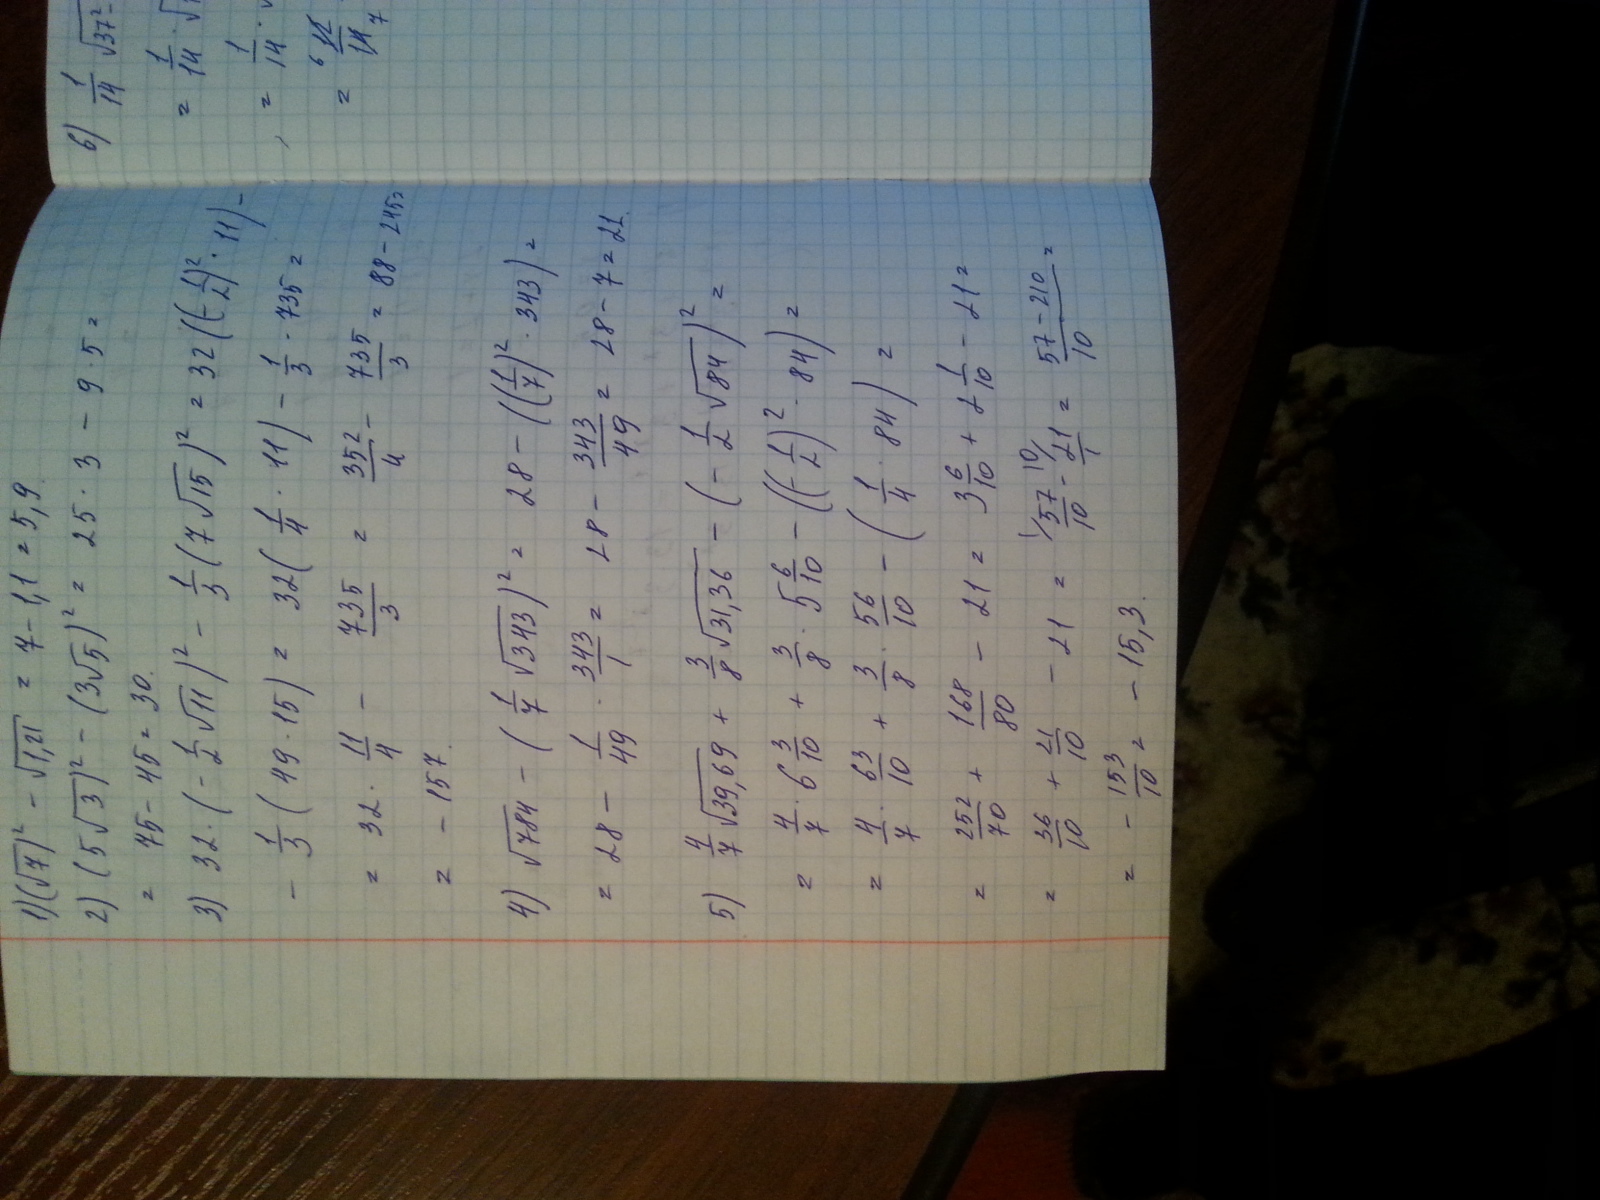 1) (√7)² - √1,21 = 7 - 1,1 = 5,9.
2) (5√3)² - (3√5)² = 25 · 3 - 9 · 5 =
= 75 - 45 = 30.
3) 32 · (-1/2 √11)² - 1/3 (7√15)² = 32((-1/2)² · 11) -
- 1/3 (49 · 15) = 32(1/4 · 11) - 1/3 · 735 =
= 32 · 11/4 - 735/3 = 352/4 - 735/3 = 88 - 245 =
= - 157.
4) √784 - (1/7 √343)² = 28 - ((1/7)² · 343) =
= 28 - 1/49 · 343/1 = 28 - 343/49 = 28 - 7 = 21.
5) 4/7 √39,69 + 3/8 √31,36 - (-1/2 √84)² =
= 4/7 · 6 3/10 + 3/8 · 5 6/10 - ((-1/2)² · 84) =
= 4/7 · 63/10 + 3/8 · 56/10 - (1/4 · 84) =
= 252/70 + 168/80 - 21 = 3 6/10 + 2 1/10 - 21 =
= 36/10 + 21/10 - 21 = 1/ 57/10 - 10/ 21/1 = 57-210/10 =
= - 153/10 = - 15,3.
6) 1/14 √37² -
= 1/14 ·
= 1/14 ·
=